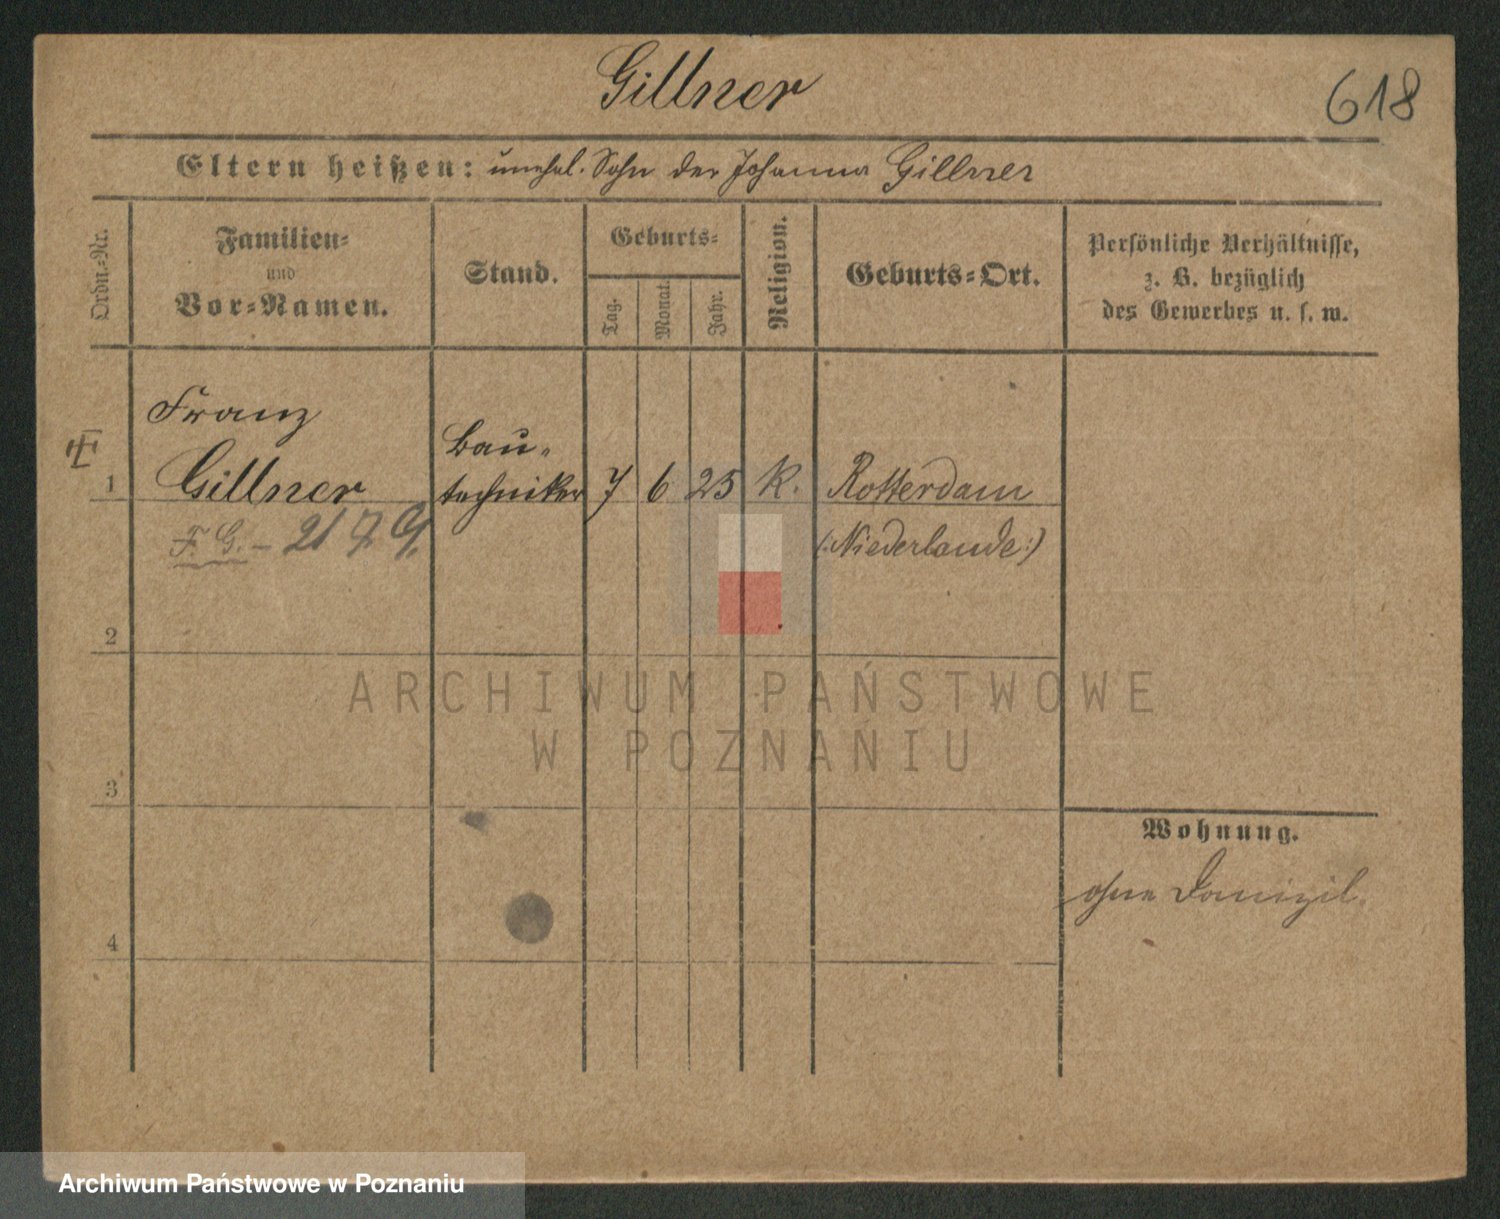 Gillner
618
Eltern heißen: unehel. Sohn der Johanna Gillner
Ordn.-Nr.
Familien-
und
Vor-Namen.
Stand.
Geburts-
Tag.
Monat.
Jahr.
Religion.
Geburts-Ort.
Persönliche Verhältnisse,
z. B. bezüglich
des Gewerbes u. s. w.
1
Franz
Gillner
F. G. –
Bau-
techniker
7 6 25 K.
Rotterdam
(:Niederlande:)
2
ARCHIWUM PAŃSTWOWE
W POZNANIU
3
Wohnung.
ohne Domizil.
4
Archiwum Państwowe w Poznaniu